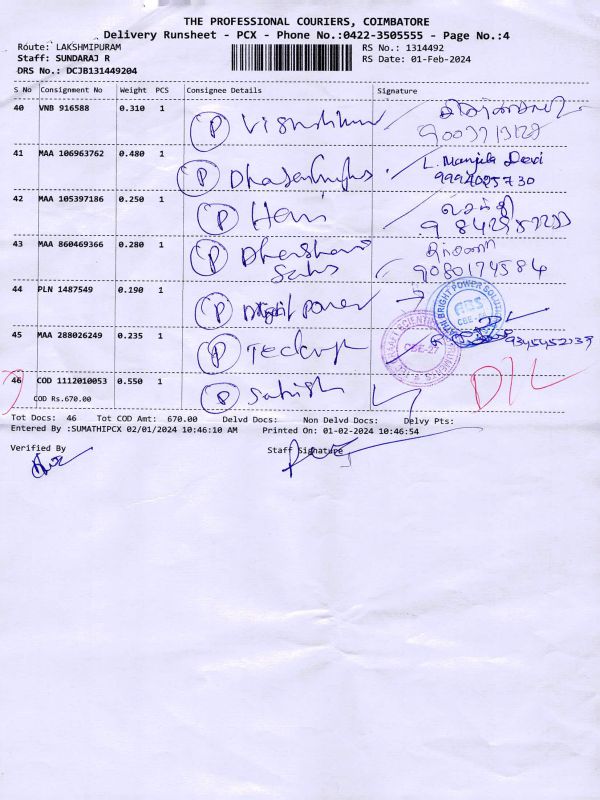 THE PROFESSIONAL COURIERS, COIMBATORE
Delivery Runsheet - PCX - Phone No.:0422-3505555 - Page No.:4
Route: LAKSHMIPURAM RS No.: 1314492
Staff: SUNDARAJ R RS Date: 01-Feb-2024
DRS No.: DCJB131449204
S No Consignment No Weight PCS Consignee Details Signature
40 VNB 916588 0.310 1 P
41 MAA 106963762 0.480 1 P L. Manjula Devi
42 MAA 105397186 0.250 1 P Hemi
43 MAA 860469366 0.280 1 P Dhershani
Sales 9080174584
44 PLN 1487549 0.190 1 P power
45 MAA 288026249 0.235 1 P 9345452139
46 COD 1112010053 0.550 1 P Sathish D/L
COD Rs.670.00
ABS
CBE-27
Tot Docs: 46 Tot COD Amt: 670.00 Delvd Docs: Non Delvd Docs: Delvy Pts:
Entered By :SUMATHIPCX 02/01/2024 10:46:10 AM Printed On: 01-02-2024 10:46:54
Verified By Staff Signature